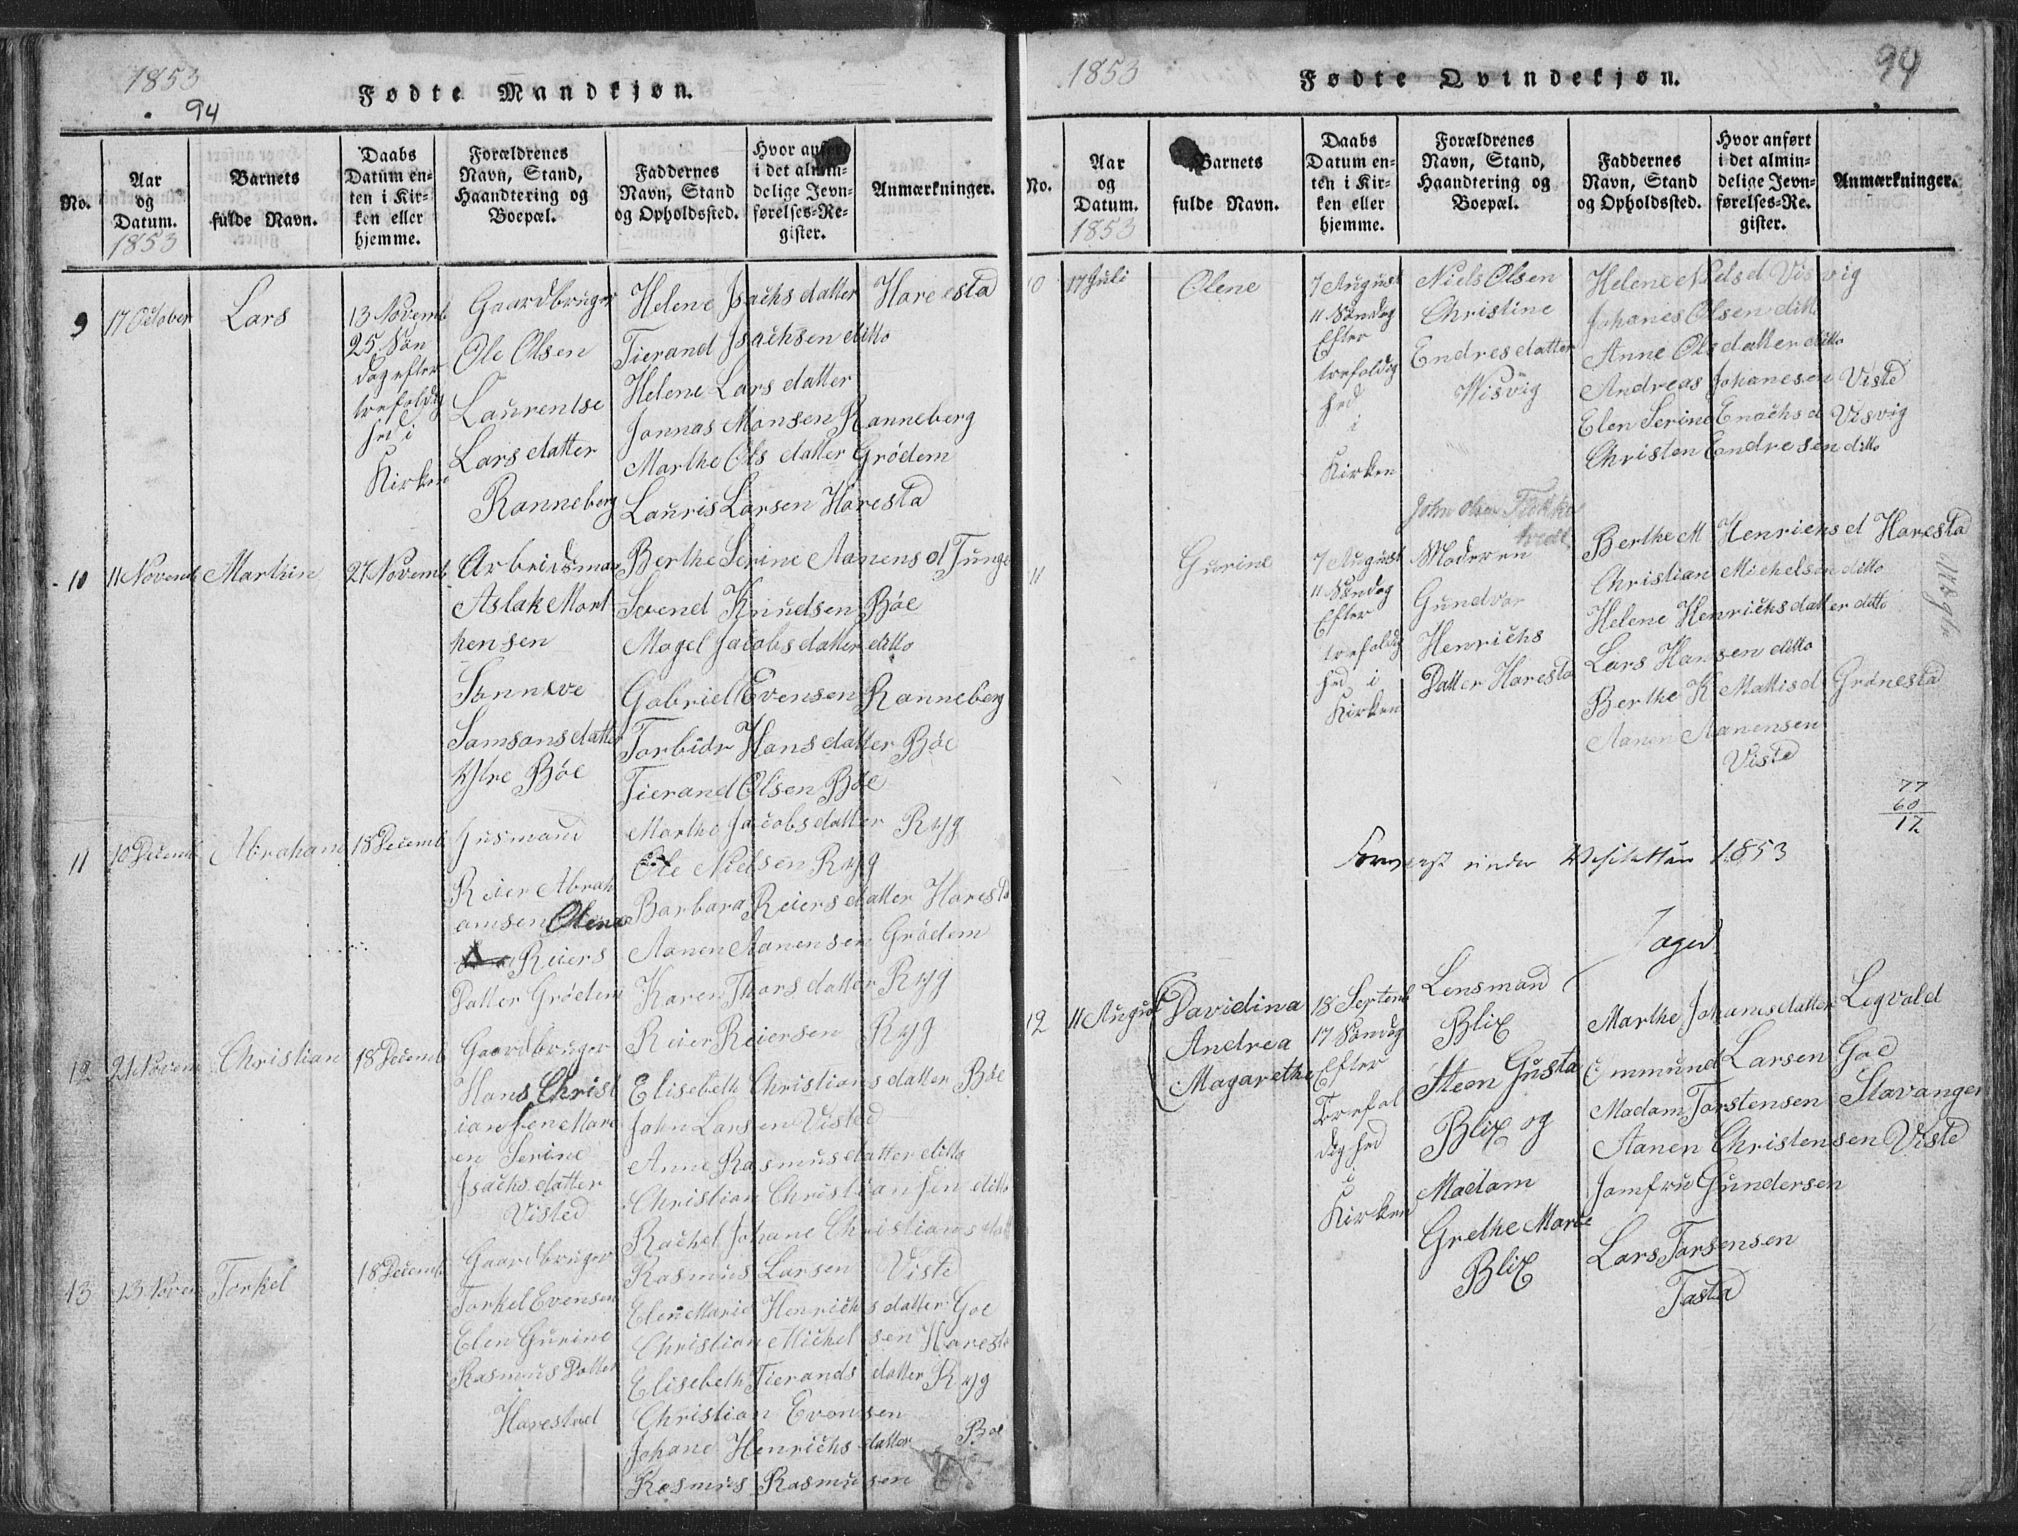 1853
94
Fødte Mandkjøn.
No.
Aar
og
Datum.
1853
Barnets
fulde Navn.
Daabs
Datum en-
ten i Kir-
ken eller
hjemme.
Forældrenes
Navn, Stand,
Haandtering og
Boepæl.
Faddernes
Navn, Stand
og Opholdssted.
Hvor anført
i det almin-
delige Jevn-
førelses-Re-
gister.
Anmærkninger.
9
17 October
Lars
13 Novemb
25 Søn
dag efter
trefoldig
hed i
Kirken
Gaardbruger
Ole Olsen
Laurentse
Lars datter
Ranneberg
Helene Isachs datter Harestad
Tierand Isachsen ditto
Helene Lars datter
Jonnas Monsen Ranneberg
Marthe Ols datter Grødem
Lauris Larsen Haresta
10
11 Novemb
Marthin
27 Novemb
Arbeidsman
Aslak Mort
hensen
Sønneve
Samsons datter
Ytre Bøe
Berthe Serine Aanens d Tunge
Svend Knudsen Bøe
Magel Jacobs datter ditto
Gabriel Evensen Ranneberg
Torbiør Hans datter Bøe
Tierand Olsen Bøe
11
10 Decemb
Abraham
18 Decemb
Husmand
Reier Abrah
amsen Olena
Reiers
Datter Grødem
Marthe Jacobs datter Ryg
Ole Nielsen Ryg
Barbara Reiers datter Haresta
Aanen Aanensen Grødem
Karen Thors datter Ryg
Reier Reiersen Ryg
12
21 Novem
Christian
18 Decemb
Gaardbruger
Hans Christ
iansen Mare
en Serine
Isachs datter
Visted
Elisebeth Christians datter Bøe
John Larsen Visted
Anne Rasmus datter ditto
Christian Christiansen ditto
Rachel Johane Christians datt
Rasmus Larsen Viste
13
13 Novem
Torkel
18 Decemb
Gaardbruger
Torkel Evensen
Elen Gurine
Rasmus Datter
Harestad
Elen Marie Henrichs datter Goe
Christian Michelsen Haresta
Elisebeth Tierands datter Ryg
Christian Evensen
Johane Henrichs datter Bøe
Rasmus Rasmusen
1853
Fødte Qvindekjøn.
94
No.
Aar
og
Datum.
1853
Barnets
fulde Navn.
Daabs
Datum en-
ten i Kir-
ken eller
hjemme.
Forældrenes
Navn, Stand,
Haandtering og
Boepæl.
Faddernes
Navn, Stand
og Opholdssted.
Hvor anført
i det almin-
delige Jevn-
førelses-Re-
gister.
Anmærkninger.
10
17 Juli
Olene
7 August
11 Søndag
Efter
trefoldig
hed
i
Kirken
Niels Olsen
Christine
Endres datter
Wisvig
Helene Niels d Visvig
Johanes Olsen ditto
Anne Ols datter ditto
Andreas Johanesen Viste
Elen Serine Enachs d Visvig
Christen Endresen ditto
11
Gurine
7 August
11 Søndag
Efter
trefoldig
hed i
Kirken
John Olsen
Moderen
Gundvor
Henrichs
Datter Haresta
Berthe M Henrichs d Haresta
Christian Michelsen ditto
Helene Henrichs datter ditto
Lars Hansen ditto
Berthe K Mattis d Grønestad
Aanen Aanensen
Viste
77
60
17
under 1853
12
11 August
Davidina
Andrea
Magarethe
18 Septemb
17 Søndag
Efter
Trefol
dighed
i
Kirken
Lensmand
Blix
Steen Gusta
Blix og
Madam
Grethe Marie
Blix
Marthe Johanesdatter Legvold
Emmund Larsen Goe
Madam Torstensen Stavanger
Aanen Christensen Viste
Jomfru Gundersen
Lars Torsensen
Tastad